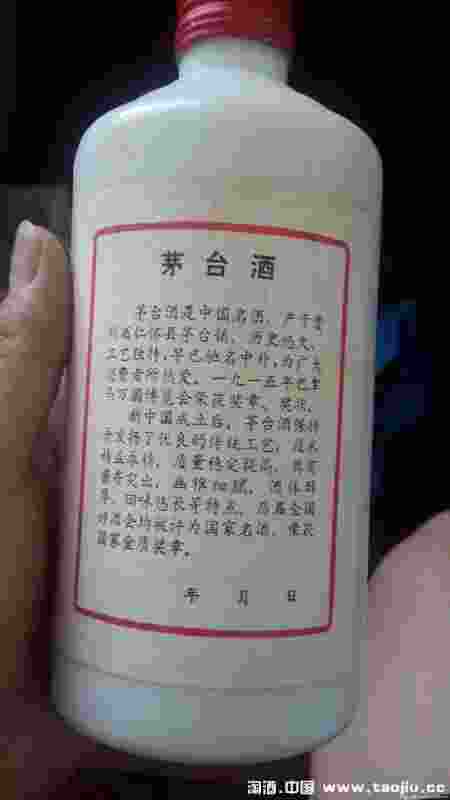 茅台酒
茅台酒是中国名酒，产于贵
州省仁怀县茅台镇，历史悠久，
工艺独特，早已驰名中外，为广大
消费者所热爱。一九一五年巴拿
马万国博览会荣获奖章、奖状。
新中国成立后，茅台酒保持
并发扬了优良的传统工艺，技术
精益求精，质量稳定提高，具有
酱香突出，幽雅细腻，酒体醇
厚，回味悠长等特点，历届全国
评酒会均被评为国家名酒，荣获
国家金质奖章。
年 月 日
淘酒.中国 www.taojiu.cc